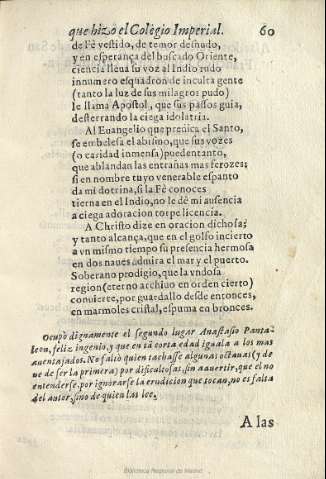 que hizo el Colegio Imperial. 60
de Fè vestido, de temor desnudo,
y en esperança del buscado Oriente,
ciencia lleua su voz al Indio rudo
innumero esquadron de inculta gente
(tanto la luz de sus milagros pudo)
le llama Apostol, que sus passos guia,
desterrando la ciega idolatria.
Al Euangelio que predica el Santo,
se embelesa el abismo, que sus vozes
(o caridad inmensa) pueden tanto,
que ablandan las entrañas mas ferozes;
si en nombre tuyo venerable espanto
da mi dotrina, si la Fè conoces
tierna en el Indio, no le dè mi ausencia
a ciega adoracion torpe licencia.
A Christo dize en oracion dichosa;
y tanto alcança, que en el golfo incierto
a vn mismo tiempo su presencia hermosa
en dos naues admira el mar y el puerto.
Soberano prodigio, que la vndosa
region (eterno archiuo en orden cierto)
conuierte, por guardallo desde entonces,
en marmoles cristal, espuma en bronces.
Ocupò dignamente el segundo lugar Anastasio Panta-
leon, feliz ingenio, y que en tã corta edad iguala a los mas
auentajados. No faltò quien tachasse algunas octauas (y de
ue de ser la primera) por dificultosas, sin aduertir, que el no
entenderse, por ignorarse la erudicion que tocan, no es falta
del autor, sino de quien las lee.
A las
Biblioteca Regional de Madrid